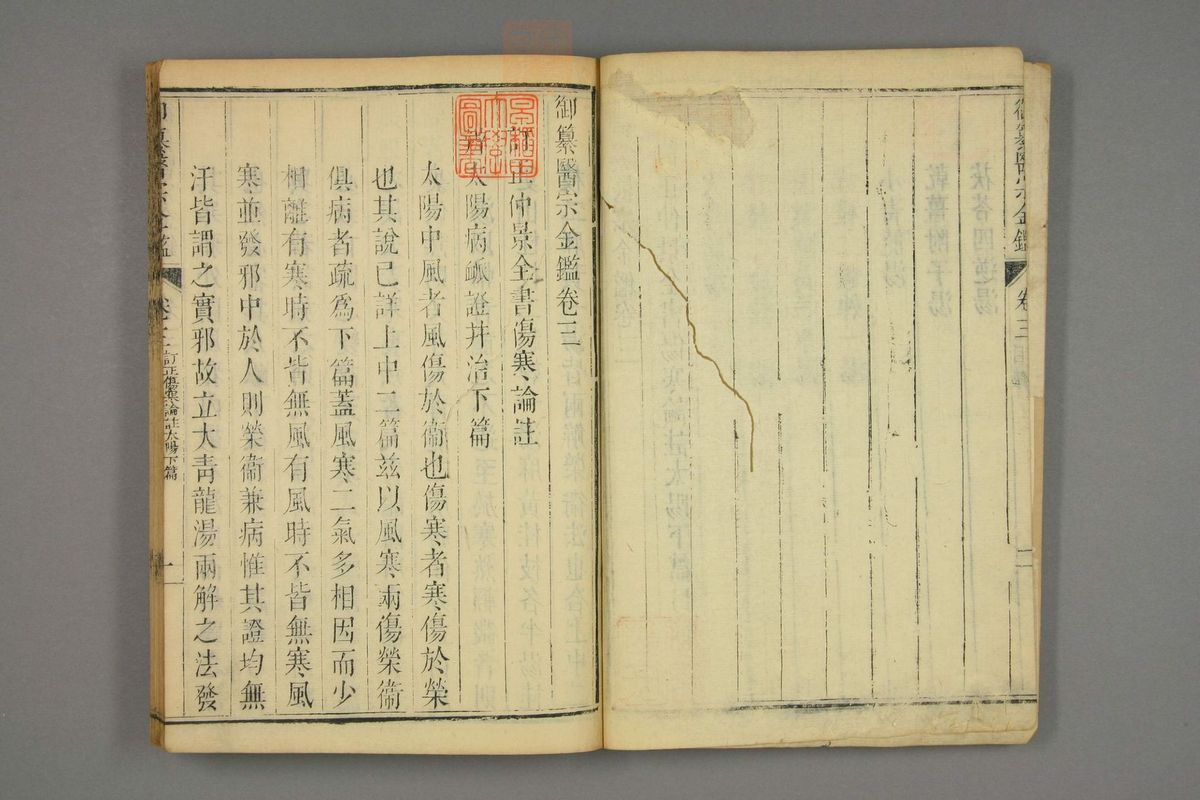 御纂醫宗金鑑 卷三
茯苓四逆湯
乾薑附子湯
御纂醫宗金鑑卷三
訂正仲景全書傷寒論註
太陽病脈證幷治下篇
太陽中風者風傷於衞也傷寒者寒傷於榮
也其說已詳上中二篇茲以風寒兩傷榮衞
俱病者疏爲下篇蓋風寒二氣多相因而少
相離有寒時不皆無風有風時不皆無寒風
寒並發邪中於人則榮衞兼病惟其證均無
汗皆謂之實邪故立大靑龍湯兩解之法發
卷三 訂正傷寒論註太陽下篇 一